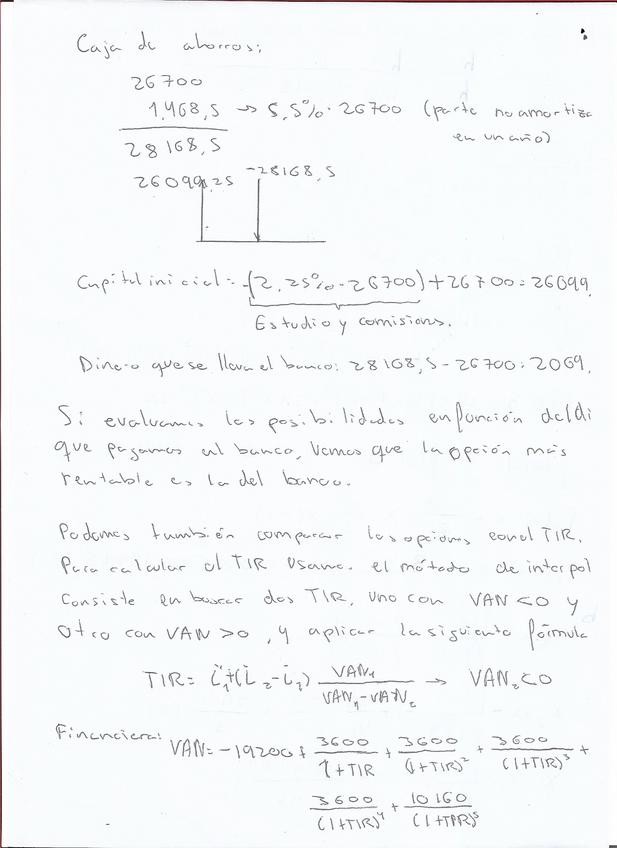 Caja de ahorros:
26700
1.468,5 → 5,5% · 26700 (parte no amortiza
en un año)
28168,5
26099,25 -28168,5
Capital inicial = -(2,25% · 26700) + 26700 = 26099,
Estudio y comisions.
Dinero que se lleva el banco: 28168,5 - 26700 = 2069,
Si evaluamos las posibilidades en función del di
que pagamos al banco, vemos que la opción más
rentable es la del banco.
Podemos también comparar las opciones con el TIR.
Para calcular el TIR usamo. el método de interpol
consiste en buscar dos TIR, uno con VAN<0 y
otro con VAN>0, y aplicar la siguiente fórmula
TIR = i₁+(i₂-i₁) VAN₁/(VAN₁-VAN₂) → VAN₂<0
Financiera: VAN = -19200 + 3600/(1+TIR) + 3600/(1+TIR)² + 3600/(1+TIR)³ +
3600/(1+TIR)⁴ + 10160/(1+TIR)⁵